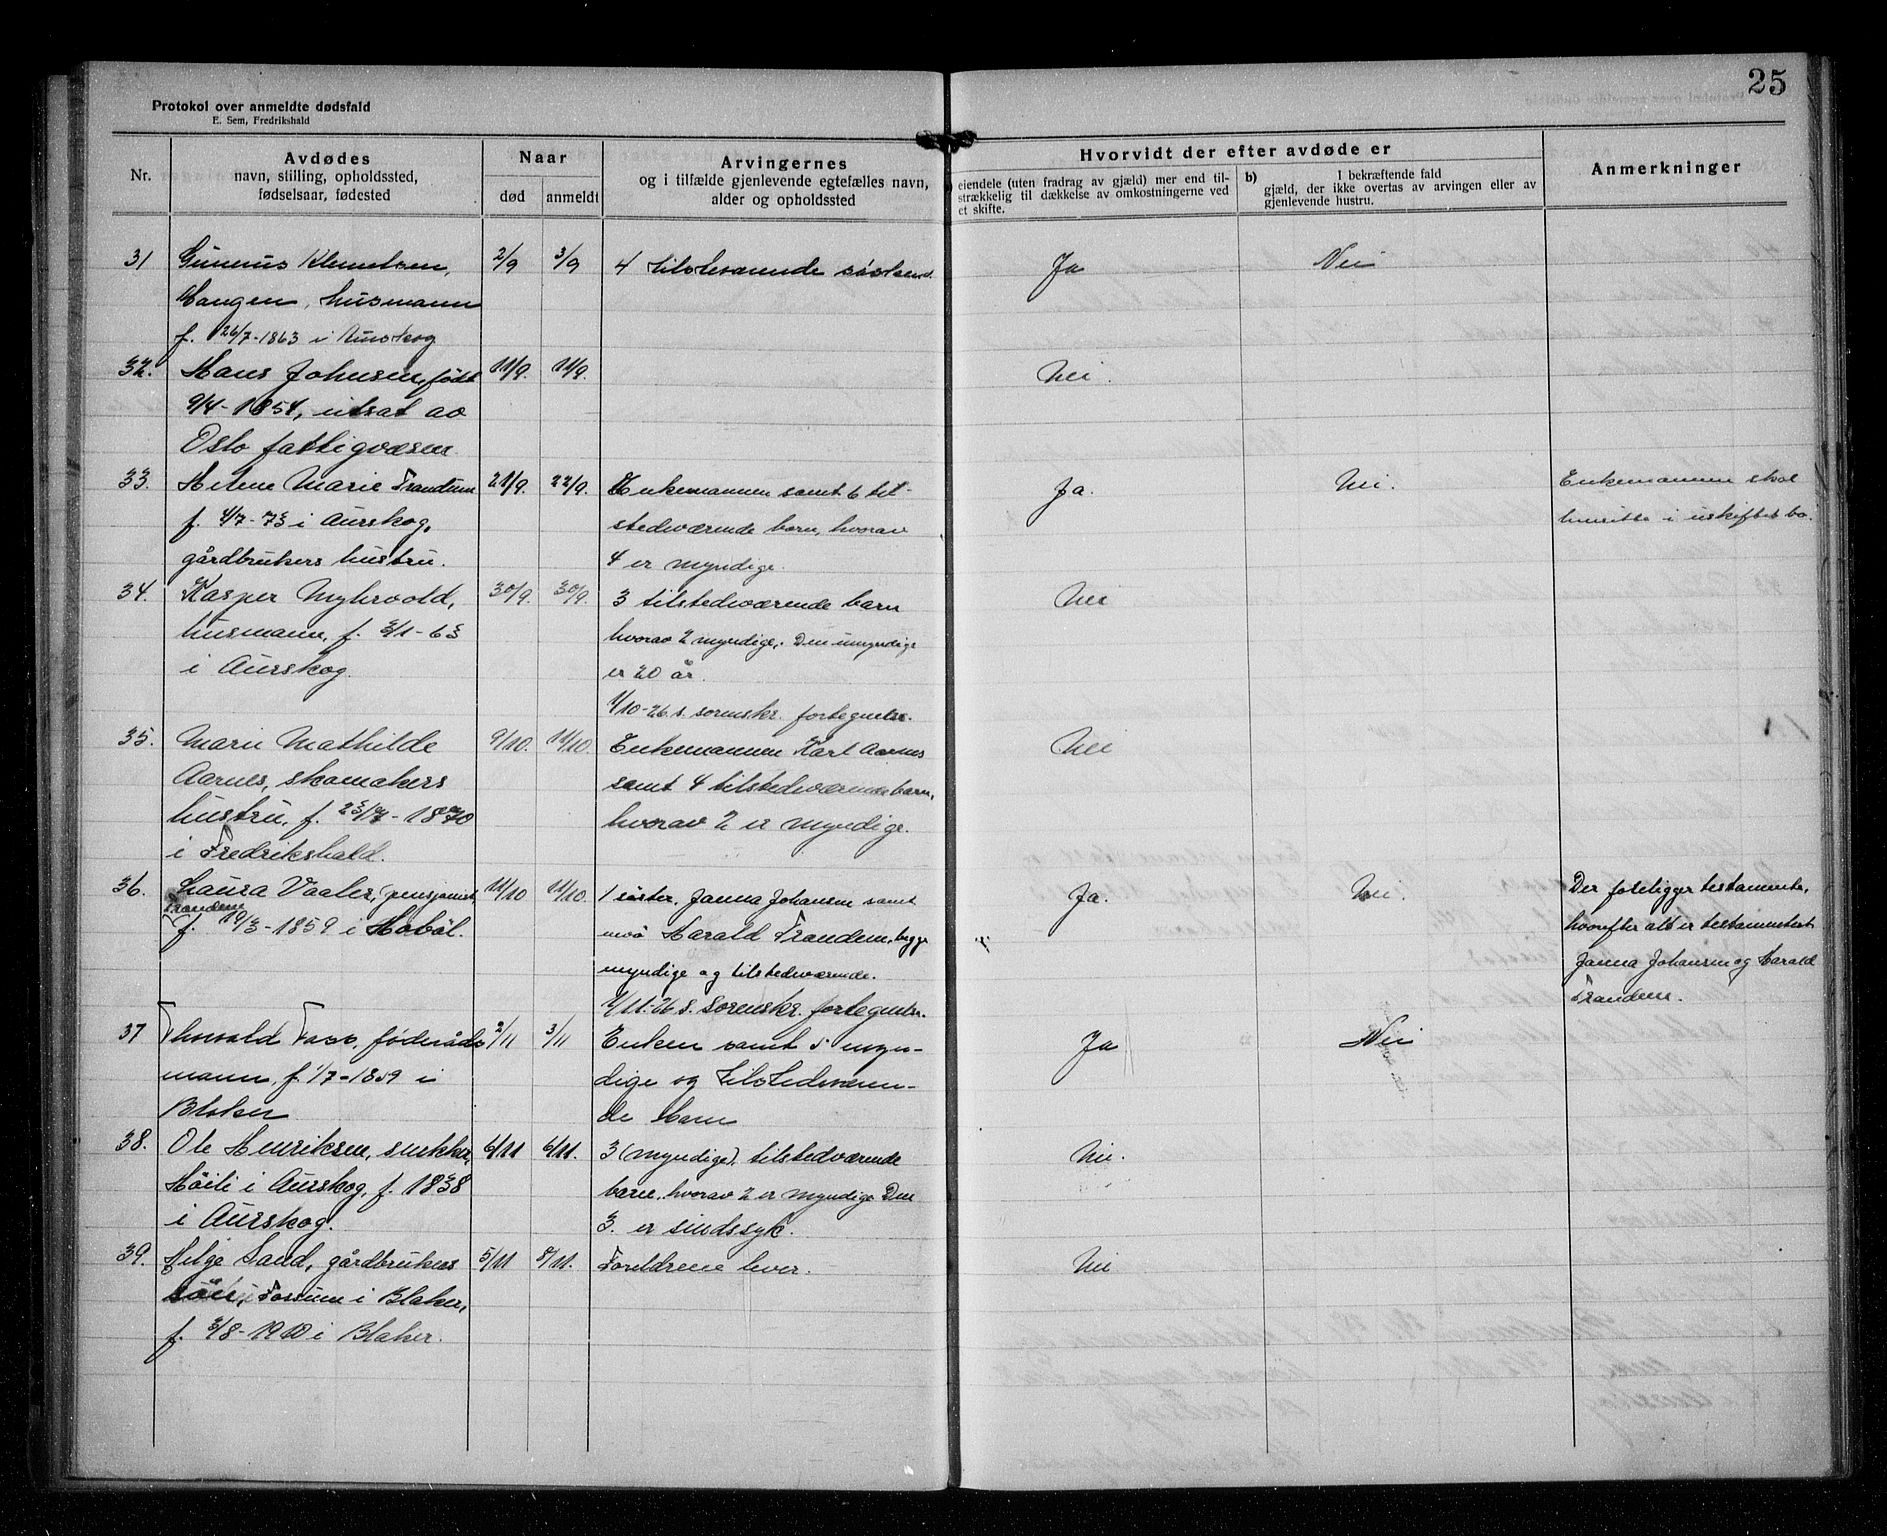 25
Protokol over anmeldte dødsfald
E. Sem, Fredrikshald
Nr.
Avdødes
navn, stilling, opholdssted,
fødselsaar, fødested
Naar
død
anmeldt
Arvingernes
og i tilfælde gjenlevende egtefælles navn,
alder og opholdssted
Hvorvidt der efter avdøde er
eiendele (uten fradrag av gjæld) mer end til-
strækkelig til dækkelse av omkostningerne ved
et skifte.
b) I bekræftende fald
gjæld, der ikke overtas av arvingen eller av
gjenlevende hustru.
Anmerkninger
31 Gunerus Klemetsen, 2/9 3/9 4 tilsteværende søsken. Ja Nei
Haugen, husmann
f. 26/7-1863 i Aurskog
32. Hans Johnsen, født 11/9. 11/9. Nei.
9/4-1854, utsat av
Oslo fattigvæsen
33. Helene Marie Trandum 21/9. 22/9. Enkemannen samt 6 til- Ja. Nei. Enkemannen skal
f. 4/7-73 i Aurskog, stedværende barn, hvorav hensitte i uskiftet bo.
gårdbrukers hustru. 4 er myndige.
34. Kasper Myhrvold, 30/9. 30/9. 3 tilstedværende barn Nei
husmann, f. 3/1-63 hvorav 2 myndige. Den umyndige
i Aurskog. er 20 år.
1/10-26 s. sorenskr. fortegnelse.
35. Marie Mathilde 9/10. 11/10. Enkemannen Karl Aarnes Nei
Aarnes, skomakers samt 4 tilstedværende barn,
hustru, f. 23/7-1870 hvorav 2 er myndige.
i Fredrikshald.
36. Laura Vaaler, pensjonist 11/10 11/10. 1 søster, Janna Johansen samt Ja. Nei. Der foreligger testamente,
Trandem
f. 19/3-1859 i Hobøl. nevø Harald Trandem, begge hvorefter alt er testamentert
myndige og tilstedværende. Janna Johansen og Harald
1/11-26 s. sorenskr. fortegnelse. Trandem.
37 Thorvald Foss, føderåds 2/11 3/11 Enken samt 5 myn- Ja Nei
mann, f. 1/7-1859 i dige og tilstedværen-
Blaker de barn
38. Ole Henriksen, snekker, 6/11 6/11. 3 (myndige) tilstedværende Nei.
Høili i Aurskog, f. 1838 barn, hvorav 2 er myndige Den
i Aurskog. 3. er sindssyk.
39. Helge Sand, gårdbrukers 5/11 8/11. Foreldrene lever. Nei
søn, Fossum i Blaker,
f. 3/8-1910 i Blaker.